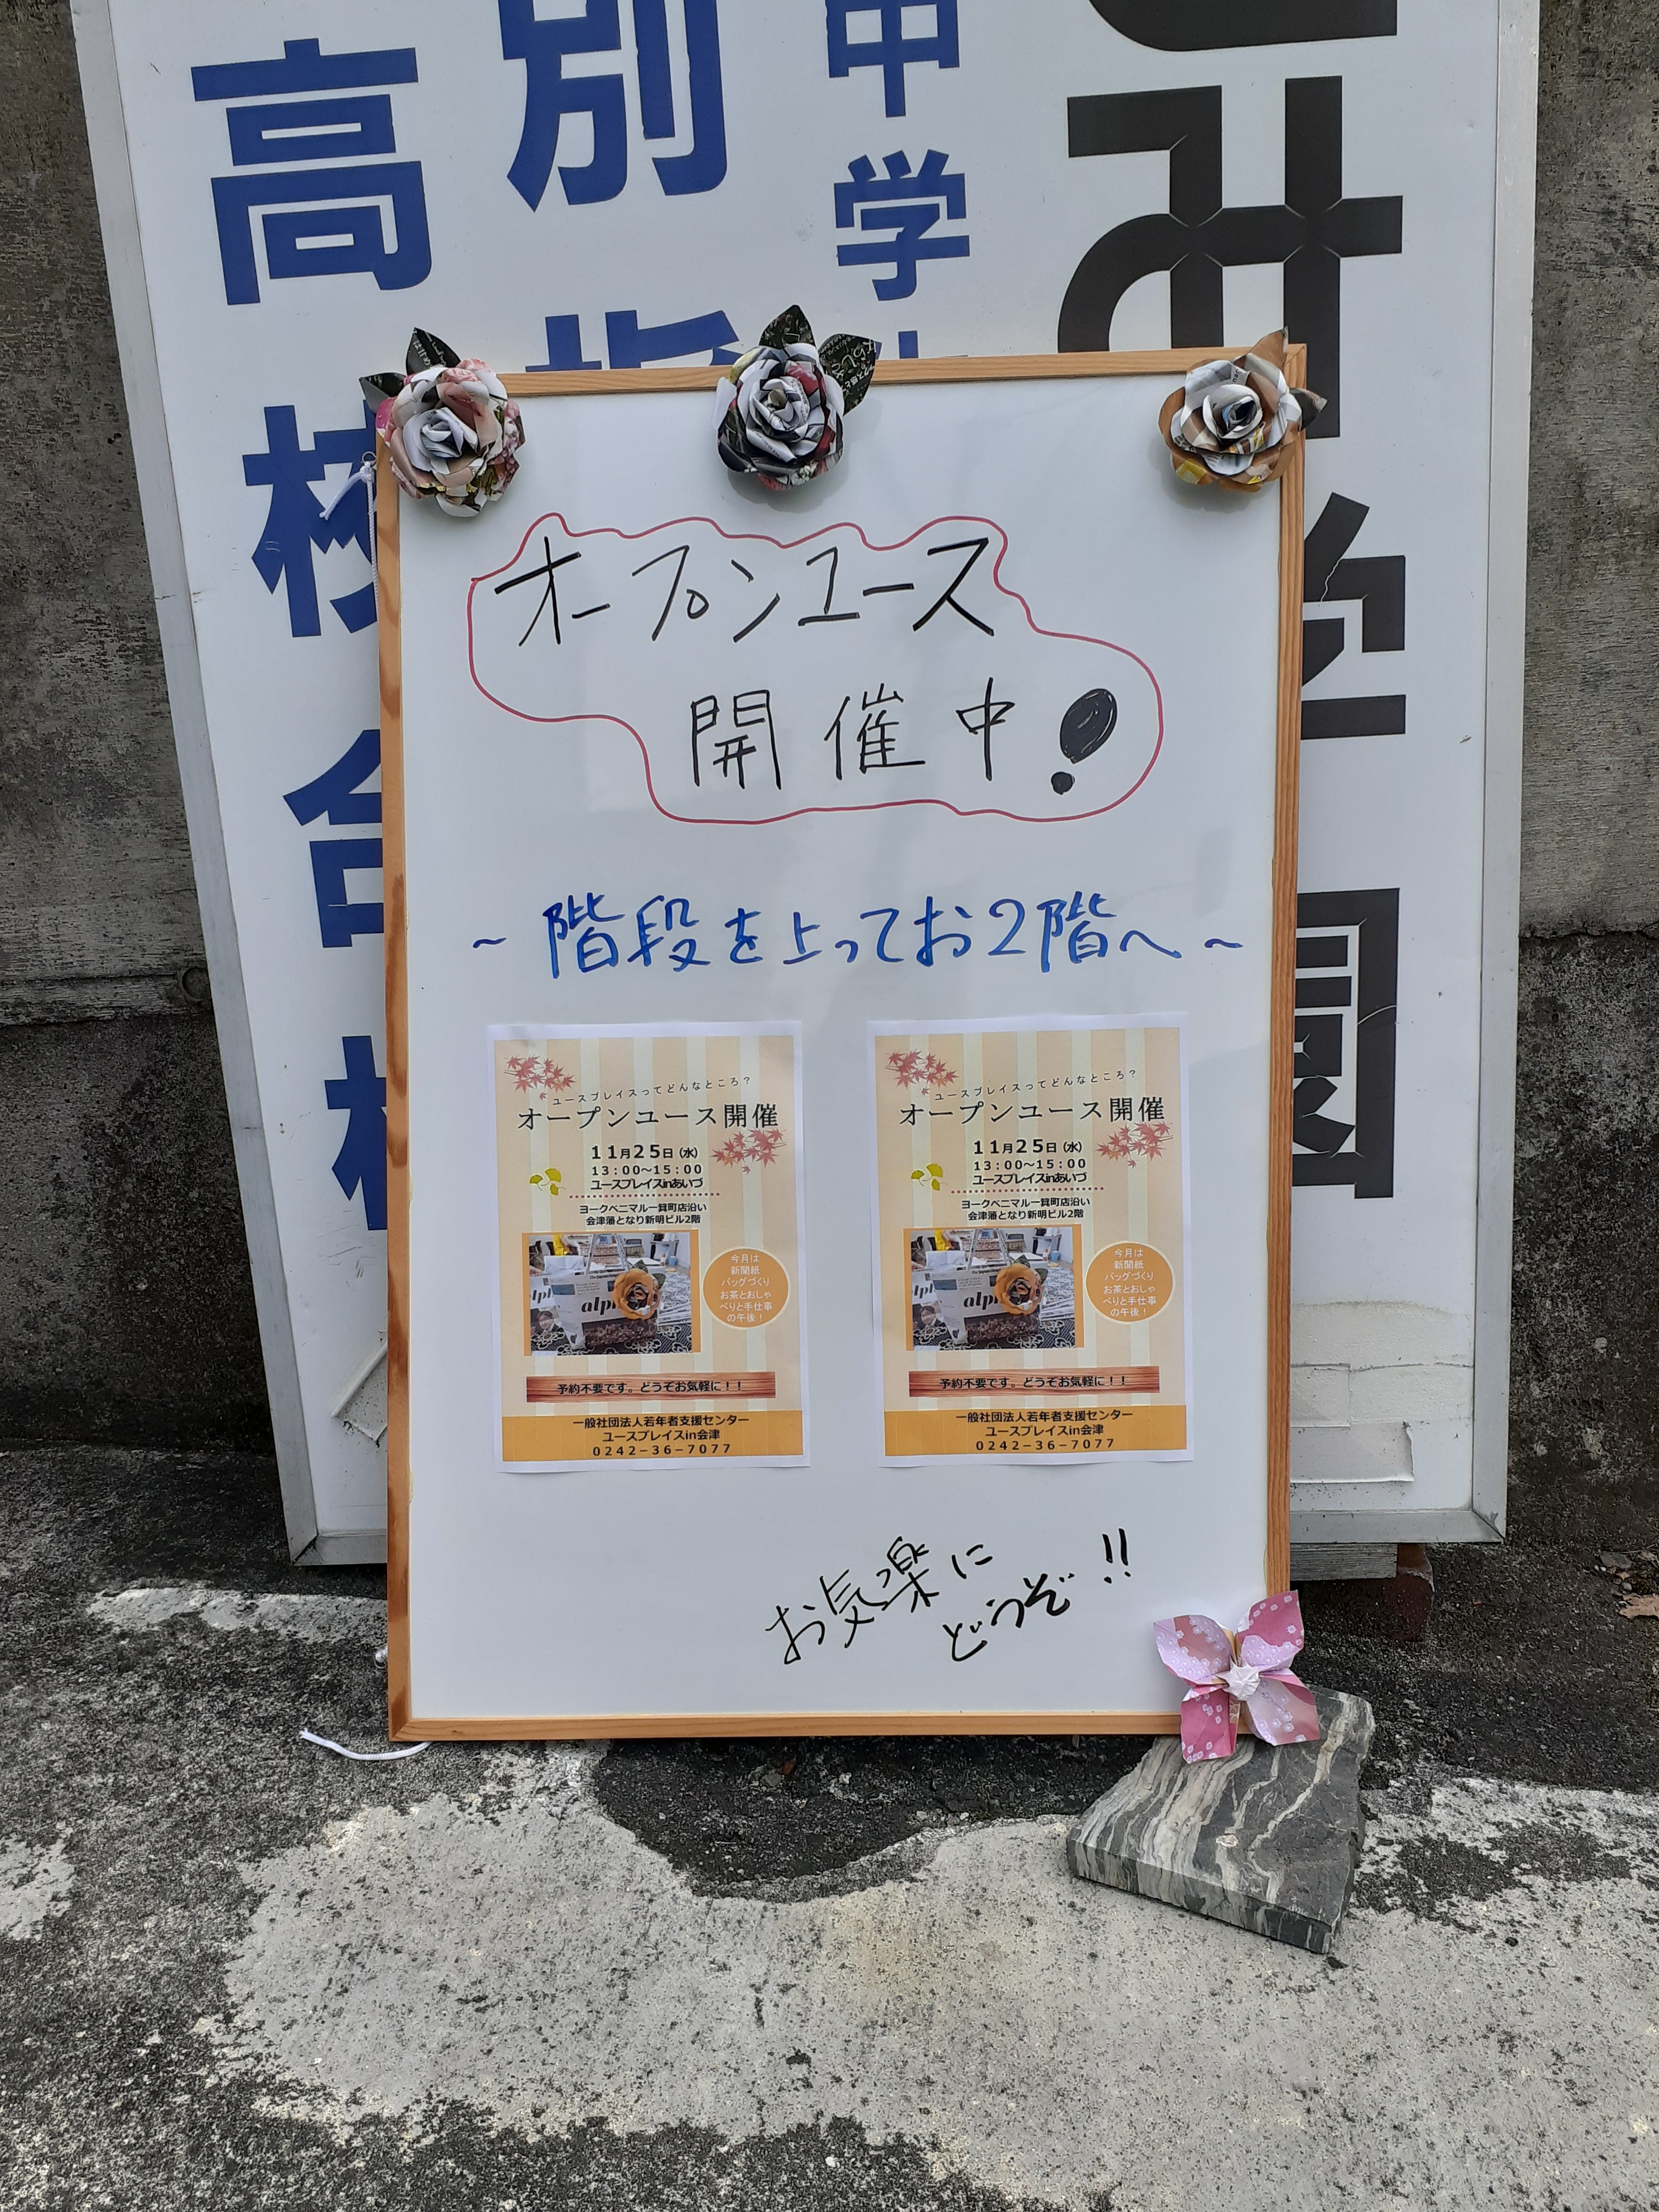 高校合格
別指
中学
み学園
オープンユース
開催中!
~階段を上ってお2階へ~
ユースプレイスってどんなところ?
オープンユース開催
11月25日(水)
13:00~15:00
ユースプレイスinあいづ
ヨークベニマル一箕町店沿い
会津藩となり新明ビル2階
今月は
新聞紙
バッグづくり
お茶とおしゃ
べりと手仕事
の午後!
alph
予約不要です。どうぞお気軽に!!
一般社団法人若年者支援センター
ユースプレイスin会津
0242-36-7077
ユースプレイスってどんなところ?
オープンユース開催
11月25日(水)
13:00~15:00
ユースプレイスinあいづ
ヨークベニマル一箕町店沿い
会津藩となり新明ビル2階
今月は
新聞紙
バッグづくり
お茶とおしゃ
べりと手仕事
の午後!
alph
予約不要です。どうぞお気軽に!!
一般社団法人若年者支援センター
ユースプレイスin会津
0242-36-7077
お気楽に
どうぞ!!